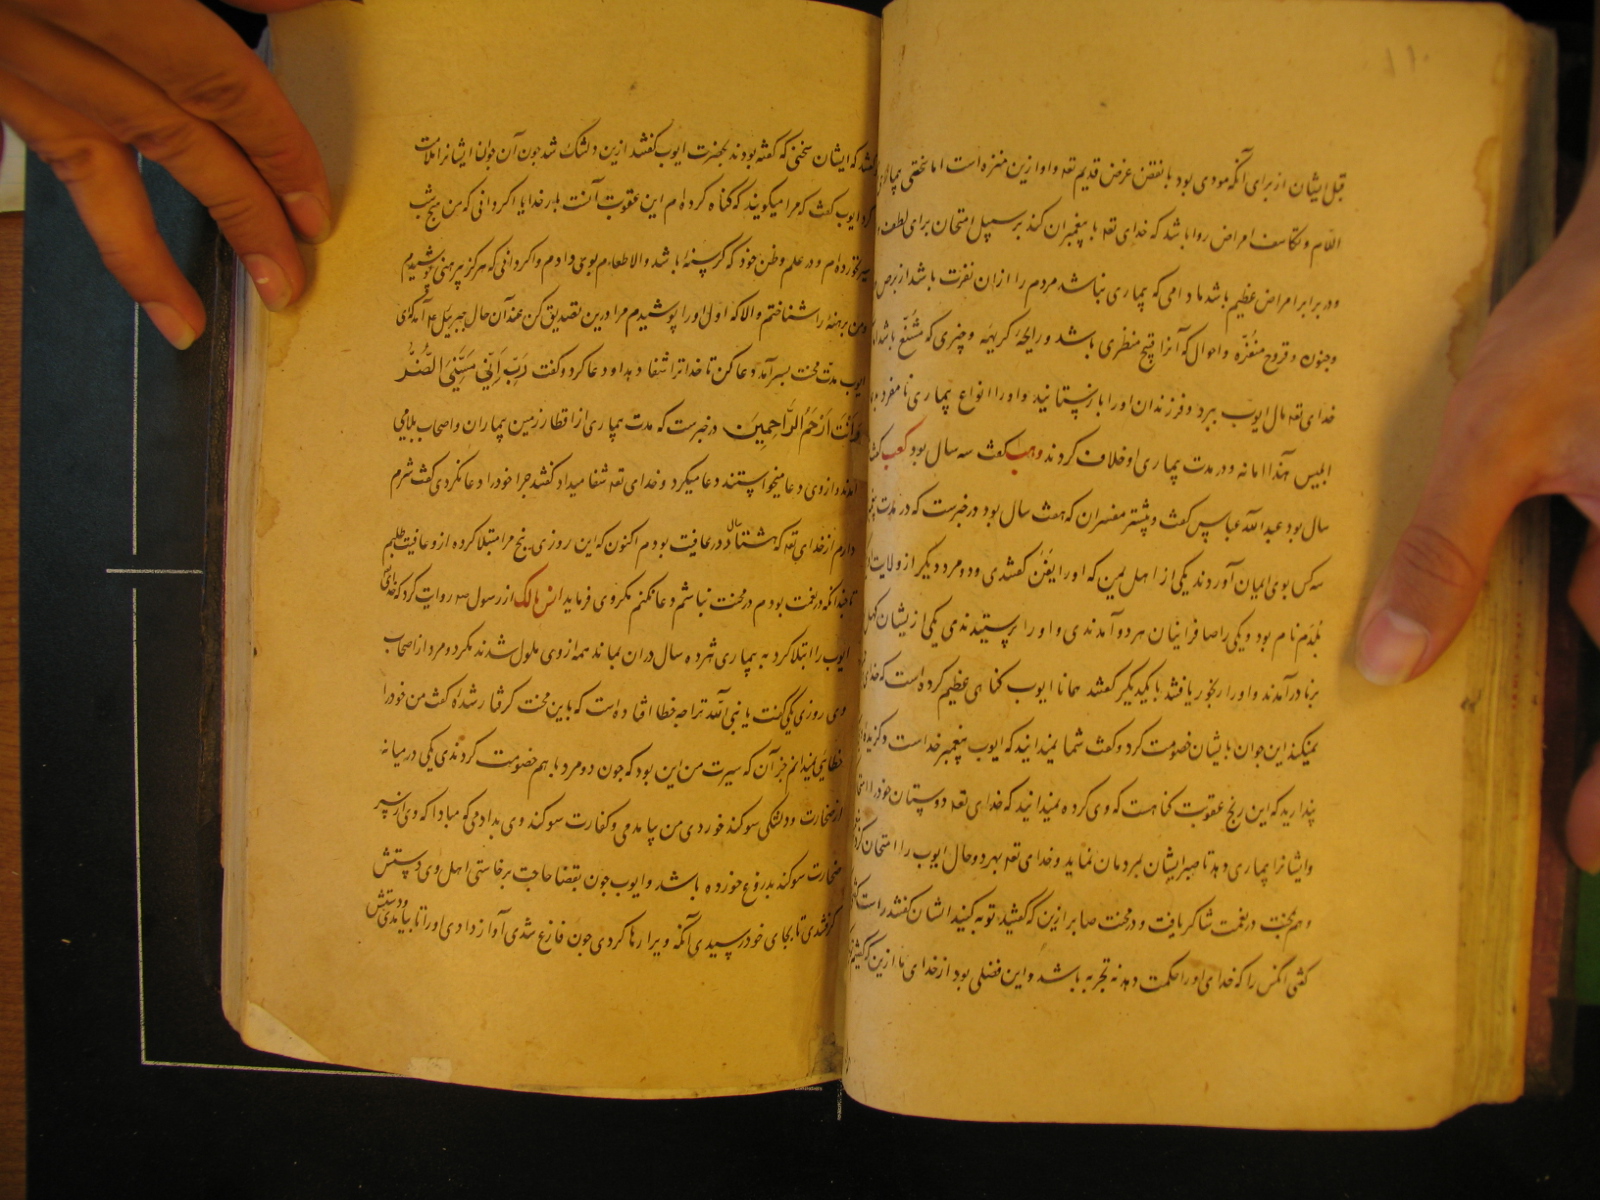 ۱۱۰
قبل ایشان از برای آنکه مودی بود با نقض غرض قدیم تعه و او ازین منزه است اما سختی بیمار
الام و تکاسف امراض روا باشد که خدای تعه با پیغمبران کند بر سبیل امتحان برای لطف
و در برابر امراض عظیم باشد مادامی که بیماری نباشد مردم را از ان نفرت باشد از برص
وجنون و قروح منفّره و احوال که آنرا قبیح منظری باشد و رایحهٔ کریهه و چیزی که مشنّع باشد
خدای تعه مال ایوب ببرد و فرزندان او را بازستانید و او را انواع بیماری نامفرد
ابلیس هذا امانه و در مدت بیماری او خلاف کردند وهب کفت سه سال بود کعب کفت
سال بود عبد الله عباس کفت و بیشتر مفسران که هفت سال بود در خبرست که در مدت
سه کس بوی ایمان آوردند یکی از اهل یمن که او را یفن کفتندی و دو مرد دیکر از ولایت
بلدم نام بود و یکی را صافر اینان هر دو آمدندی و او را پرستیدندی یکی ازیشان کهل
برنا درآمدند و او را رنجور یافتند با یکدیکر کفتند همانا ایوب کناهی عظیم کرده است که خدای
نمیکند این جوان با یشان خصومت کرد و کفت شما نمیدانید که ایوب پیغمبر خداست و کزیده
پندارید که این رنج عقوبت کناهست که وی کرده نمیدانید که خدای تعه دوستان خود را
وایشانرا بیماری دهد تا صبر ایشان بمردمان نماید و خدای تعه بهر دو حال ایوب را امتحان کرد
وهم بمحنت در نعمت شاکر یافت و در محنت صابر ازین که کفتید توبه کنید ایشان کفتند راست
کفتی انکس را که خدای او را حکمت دهد نه تجربه باشد و این فضلی بود از خدای ما ازین که کفتیم
کفتند که ایشان سخنی که کفته بودند بحضرت ایوب کفتند ازین دلتنک شد جون آن جوان ایشانرا ملامت
کرد ایوب کفت که مرا میکویند که کناه کردهٔم این عقوبت آنست بار خدایا اکر دانی که من هیچ شب
سیر نخوردهٔم و در علم وطن خود که کرسنهٔ باشد و الا طعام بوی دادم و اکر دانی که هرکز پیرهنی نپوشیدم
ومن برهنهٔ را شناختم و الا که اول او را پوشیدم مرا درین تصدیق کن عند آن حال جبرئیل ع آمد کای
ایوب مدت محنت بسر آمد دعا کن تا خدا ترا شفا دهد او دعا کرد و کفت رَبِّ اَنّی مَسَّنِیَ الضُّرُّ
وَاَنْتَ اَرْحَمُ الرَّاحِمِینَ در خبرست که مدت بیماری از اقطار زمین بیماران و اصحاب بلا می
آمدند و از وی دعا میخواستند دعا میکرد و خدای تعه شفا میداد کفتند جرا خود را دعا نکردی کفت شرم
دارم از خدای تعه که هشتاد سال در عافیت بودم اکنون که این روزی پنج مرا مبتلا کرده از و عافیت طلبم
تا جندانکه در نعمت بودم در محنت نباشم دعا نکنم مکر وی فرماید انس مالک از رسول صه روایت کرد که خدای
ایوب را ابتلا کرد به بیماری هژده سال دران بماند همه از وی ملول شدند مکر دو مرد از اصحاب
وی روزی یکی کفت یا نبی الله ترا چه خطا افتاده است که باین محنت کرفتار شدهٔ کفت من خود را
خطائی نمیدانم جز آن که سیرت من این بود که جون دو مرد با هم خصومت کردندی یکی در میانه
از ضجارت و دلتنکی سوکند خوردی من بیامدمی و کفارت سوکند وی بدادمی که مبادا که وی از سر
ضجارت سوکند بدروغ خورده باشد و ایوب جون بقضا حاجت برخاستی اهل وی دستش
کرفتندی تا بجای خود رسیدی آنکه ویرا رها کردی جون فارغ شدی آواز دادی او را تا بیامدی و دستش